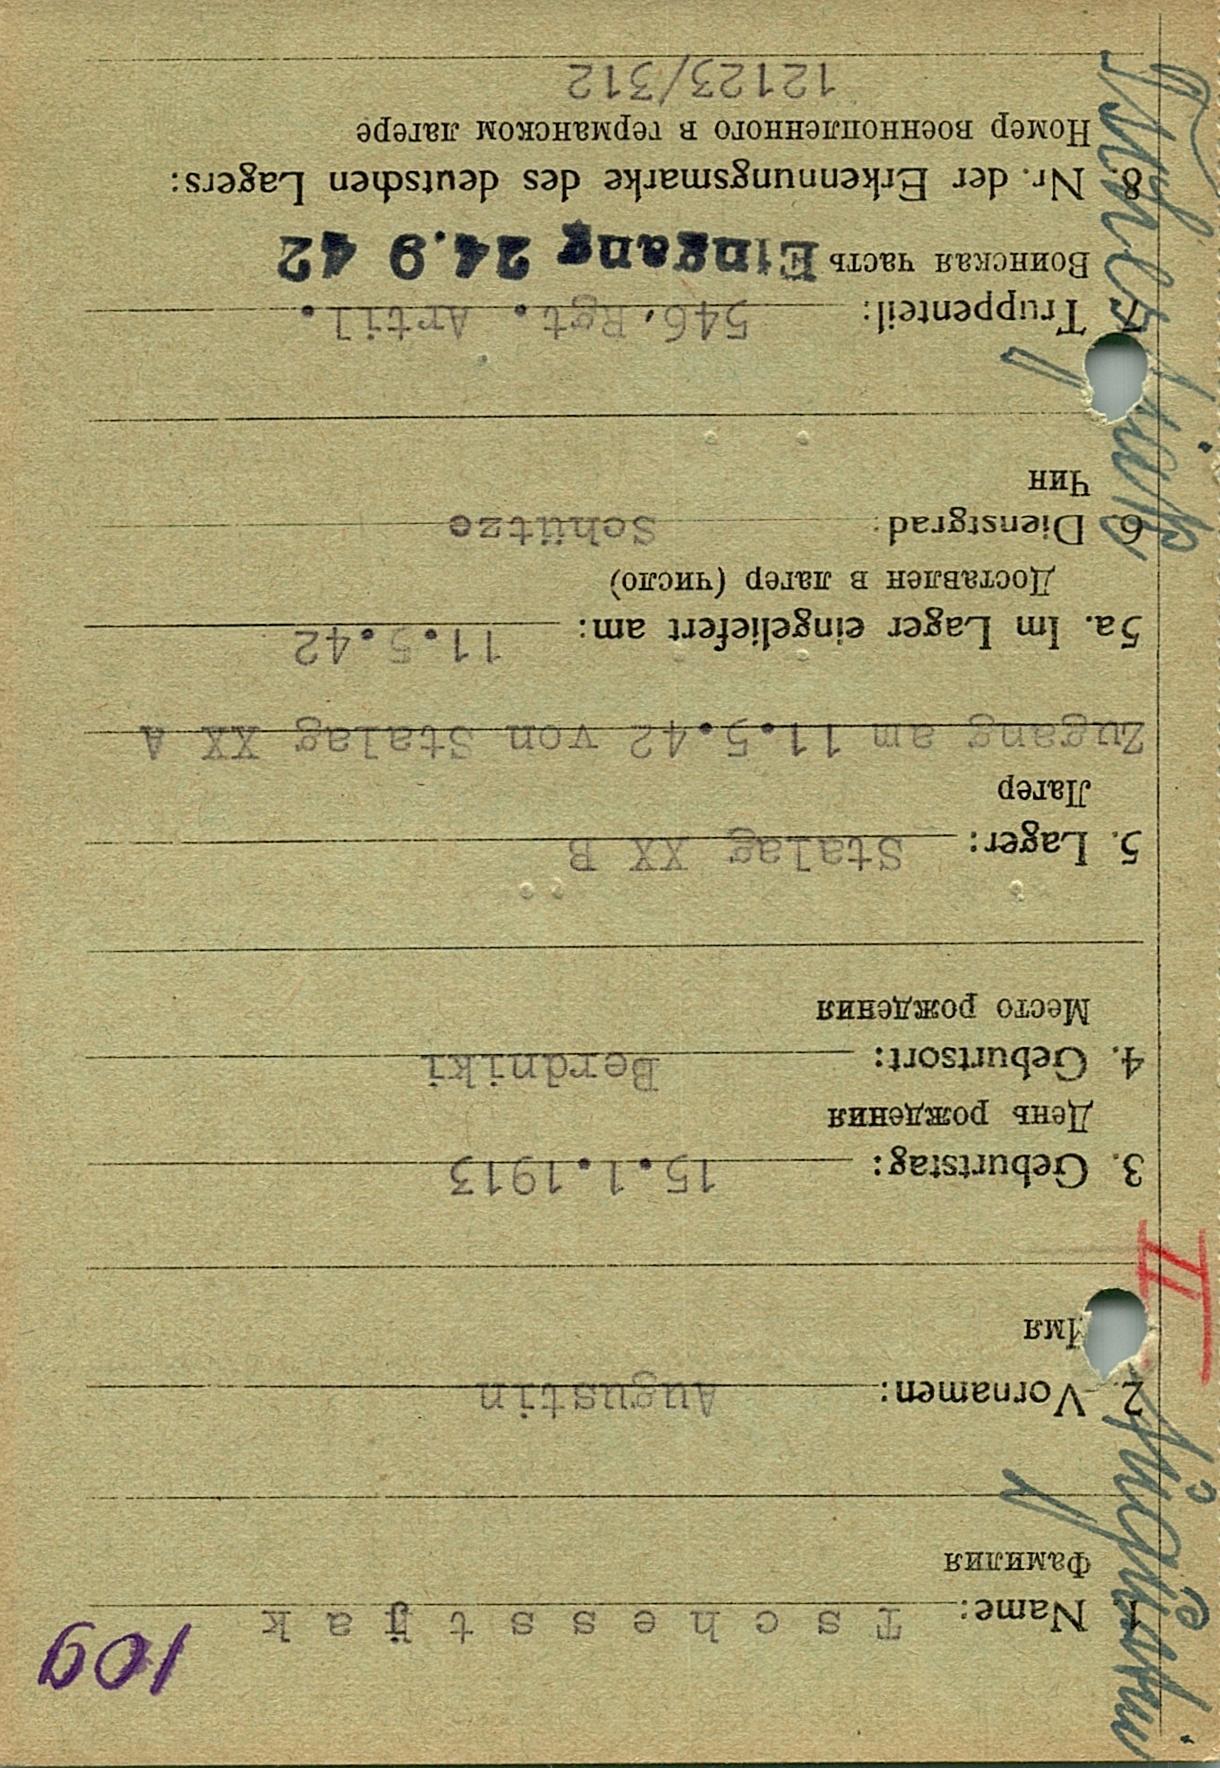 109
1. Name: Tschesstjak
Фамилия
2. Vornamen: Augustin
Имя
II
3. Geburtstag: 15.1.1913
День рождения
4. Geburtsort: Berdniki
Место рождения
5. Lager: Stalag XX B
Лагер
Zugang am 11.5.42 von Stalag XX A
5a. Im Lager eingeliefert am: 11.5.42
Доставлен в лагер (число)
6. Dienstgrad: Schütze
Чин
7. Truppenteil: 546.Rgt. Artil.
Воинская часть Eingang 24.9 42
8. Nr. der Erkennungsmarke des deutschen Lagers:
Номер военнопленного в германском лагере
12123/312